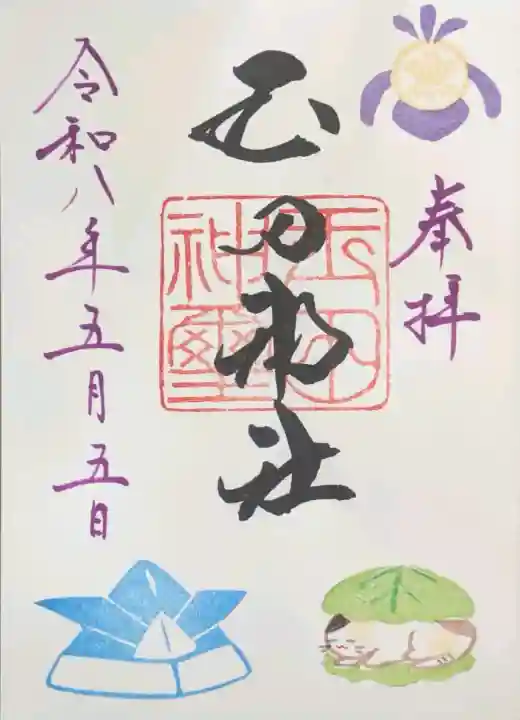 奉拝
玉田神社
玉田
神璽
令和八年五月五日